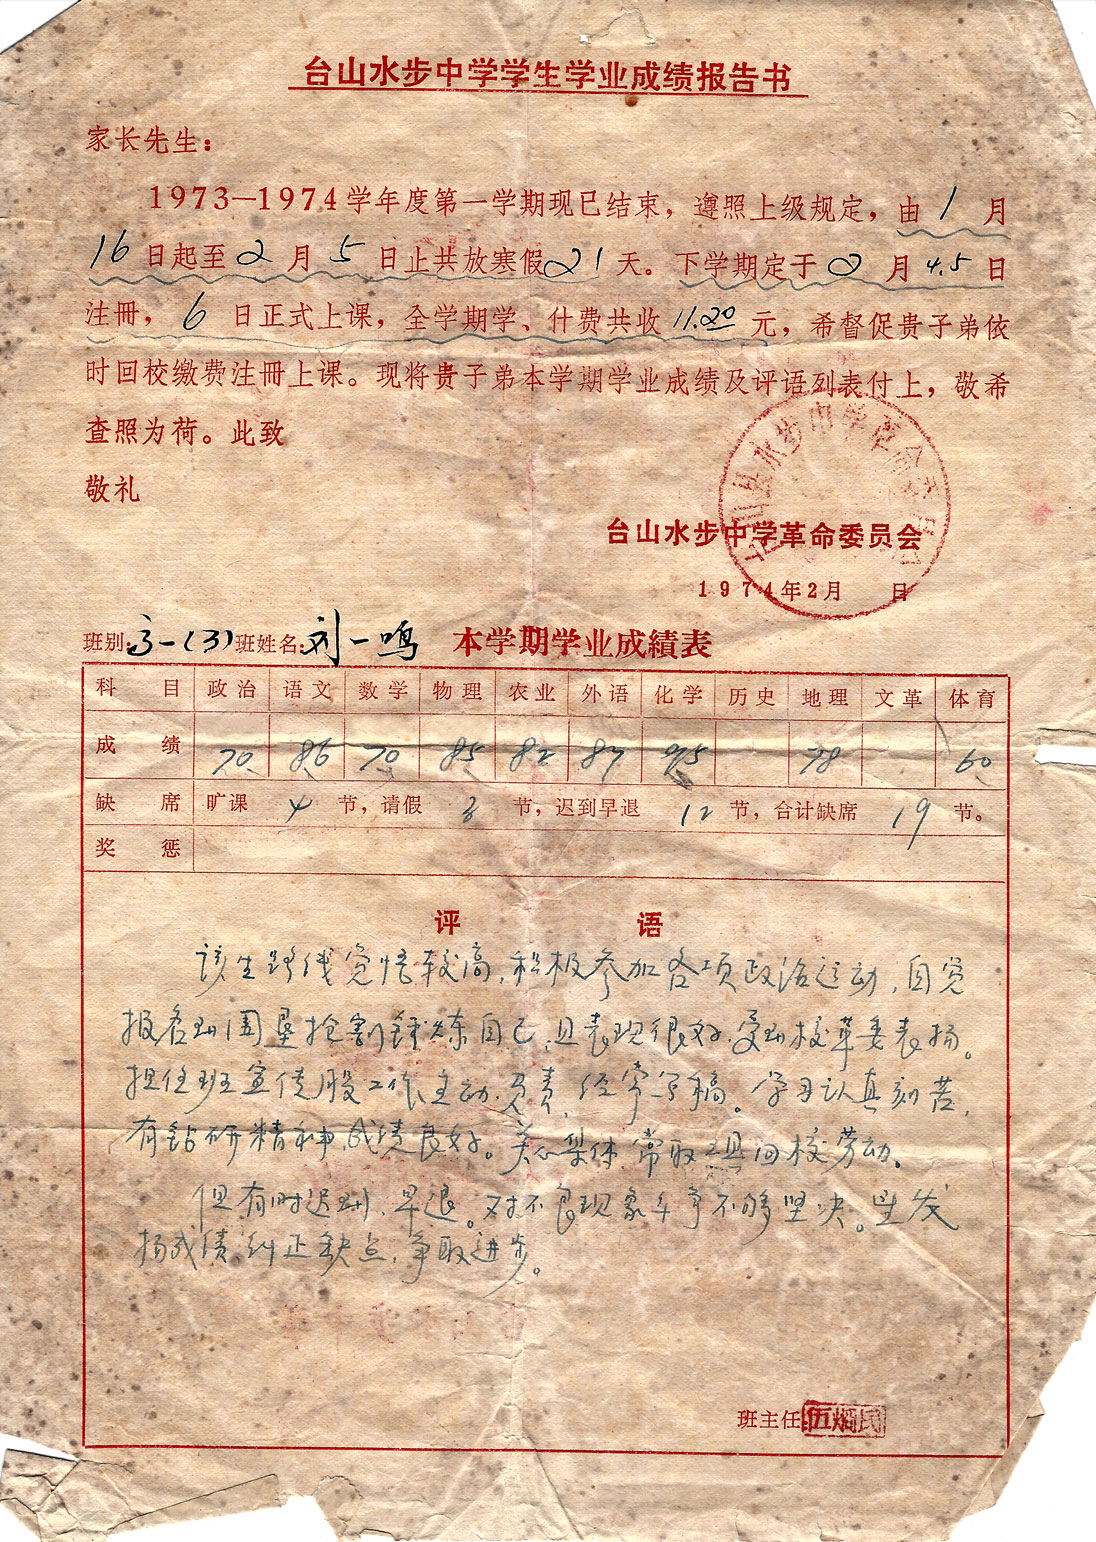 台山水步中学学生学业成绩报告书
家长先生：
1973—1974学年度第一学期现已结束，遵照上级规定，由1月
16日起至2月5日止共放寒假21天。下学期定于2月4.5日
注册，6日正式上课，全学期学、什费共收11.20元，希督促贵子弟依
时回校缴费注册上课。现将贵子弟本学期学业成绩及评语列表付上，敬希
查照为荷。此致
敬礼
台山县水步中学革命委员会
台山水步中学革命委员会
1974年2月 日
班别：高一(3)班姓名：刘一鸣 本学期学业成績表
科目 政治 语文 数学 物理 农业 外语 化学 历史 地理 文革 体育
成绩 70 86 70 85 82 87 95 78 60
缺席 旷课4节，请假3节，迟到早退12节，合计缺席19节。
奖惩
评语
该生路线觉悟较高，积极参加各项政治运动，自觉
报名到围垦抢割锻炼自己，且表现很好，受到校革委表扬。
担任班宣传股工作主动、负责，经常写稿。学习认真刻苦，
有钻研精神，成绩良好。关心集体，常取工具回校劳动。
但有时迟到、早退。对不良现象斗争不够坚决。望发
扬成绩，纠正缺点，争取进步。
班主任 伍 民